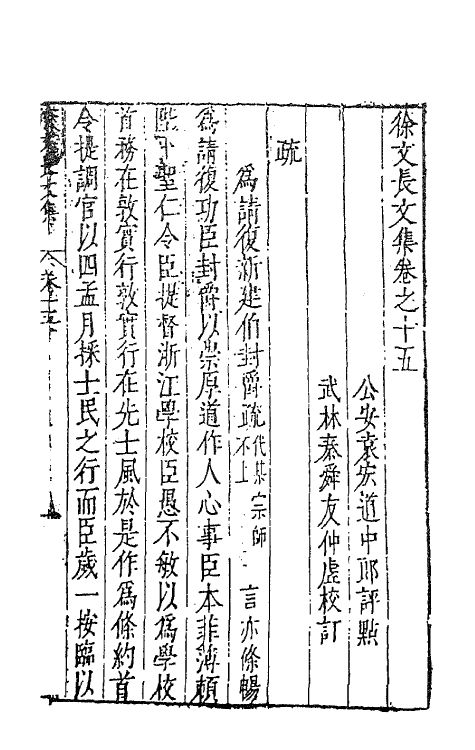 徐文長文集卷之十五
公安袁宏道中郎評點
武林秦舜友仲虛校訂
疏
為請復新建伯封爵疏代某宗師不上 言亦條暢
為請復功臣封爵以崇厚道作人心事臣本菲薄賴
陛下聖仁令臣提督浙江學校臣愚不敏以為學校
首務在敦實行敦實行在先士風於是作為條約首
令提調官以四孟月採士民之行而臣歲一按臨以
徐文長文集 卷十五